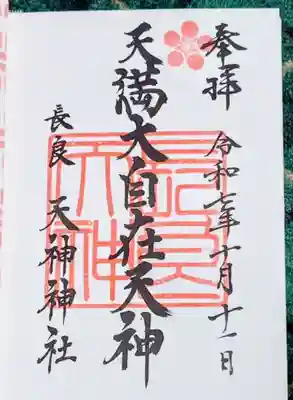 奉拝
令和七年十月十一日
天満大自在天神
長良
天神神社
長良
天神